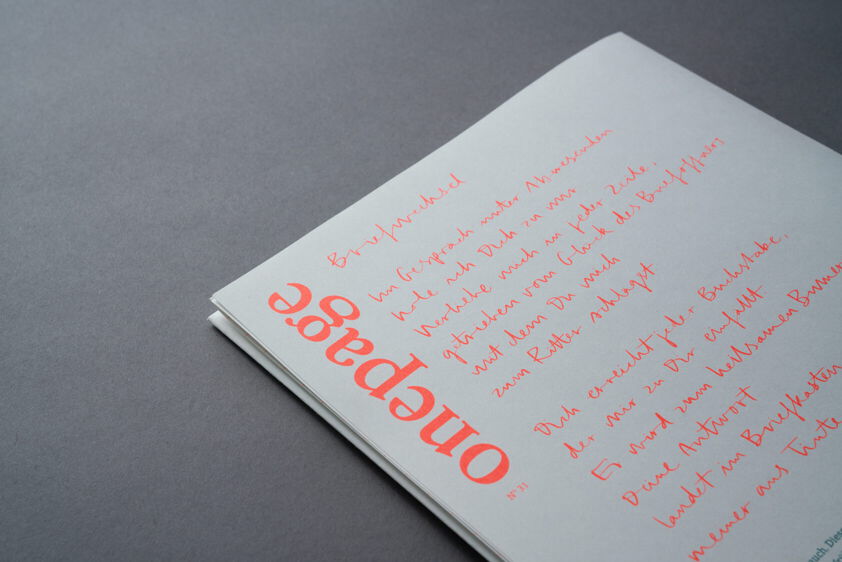 Briefwechsel
Im Gespräch unter Abwesenden
hole ich Dich zu mir
Verliebe mich in jede Zeile,
getrieben vom Glück des Brieföffners
mit dem Du mich
zum Ritter schlägst
Dich erreicht jeder Buchstabe,
der mir zu Dir einfällt
Er wird zum heilsamen
Deine Antwort
landet im Briefkasten
meiner aus Tinte
onepage
N°31
auch. Diese